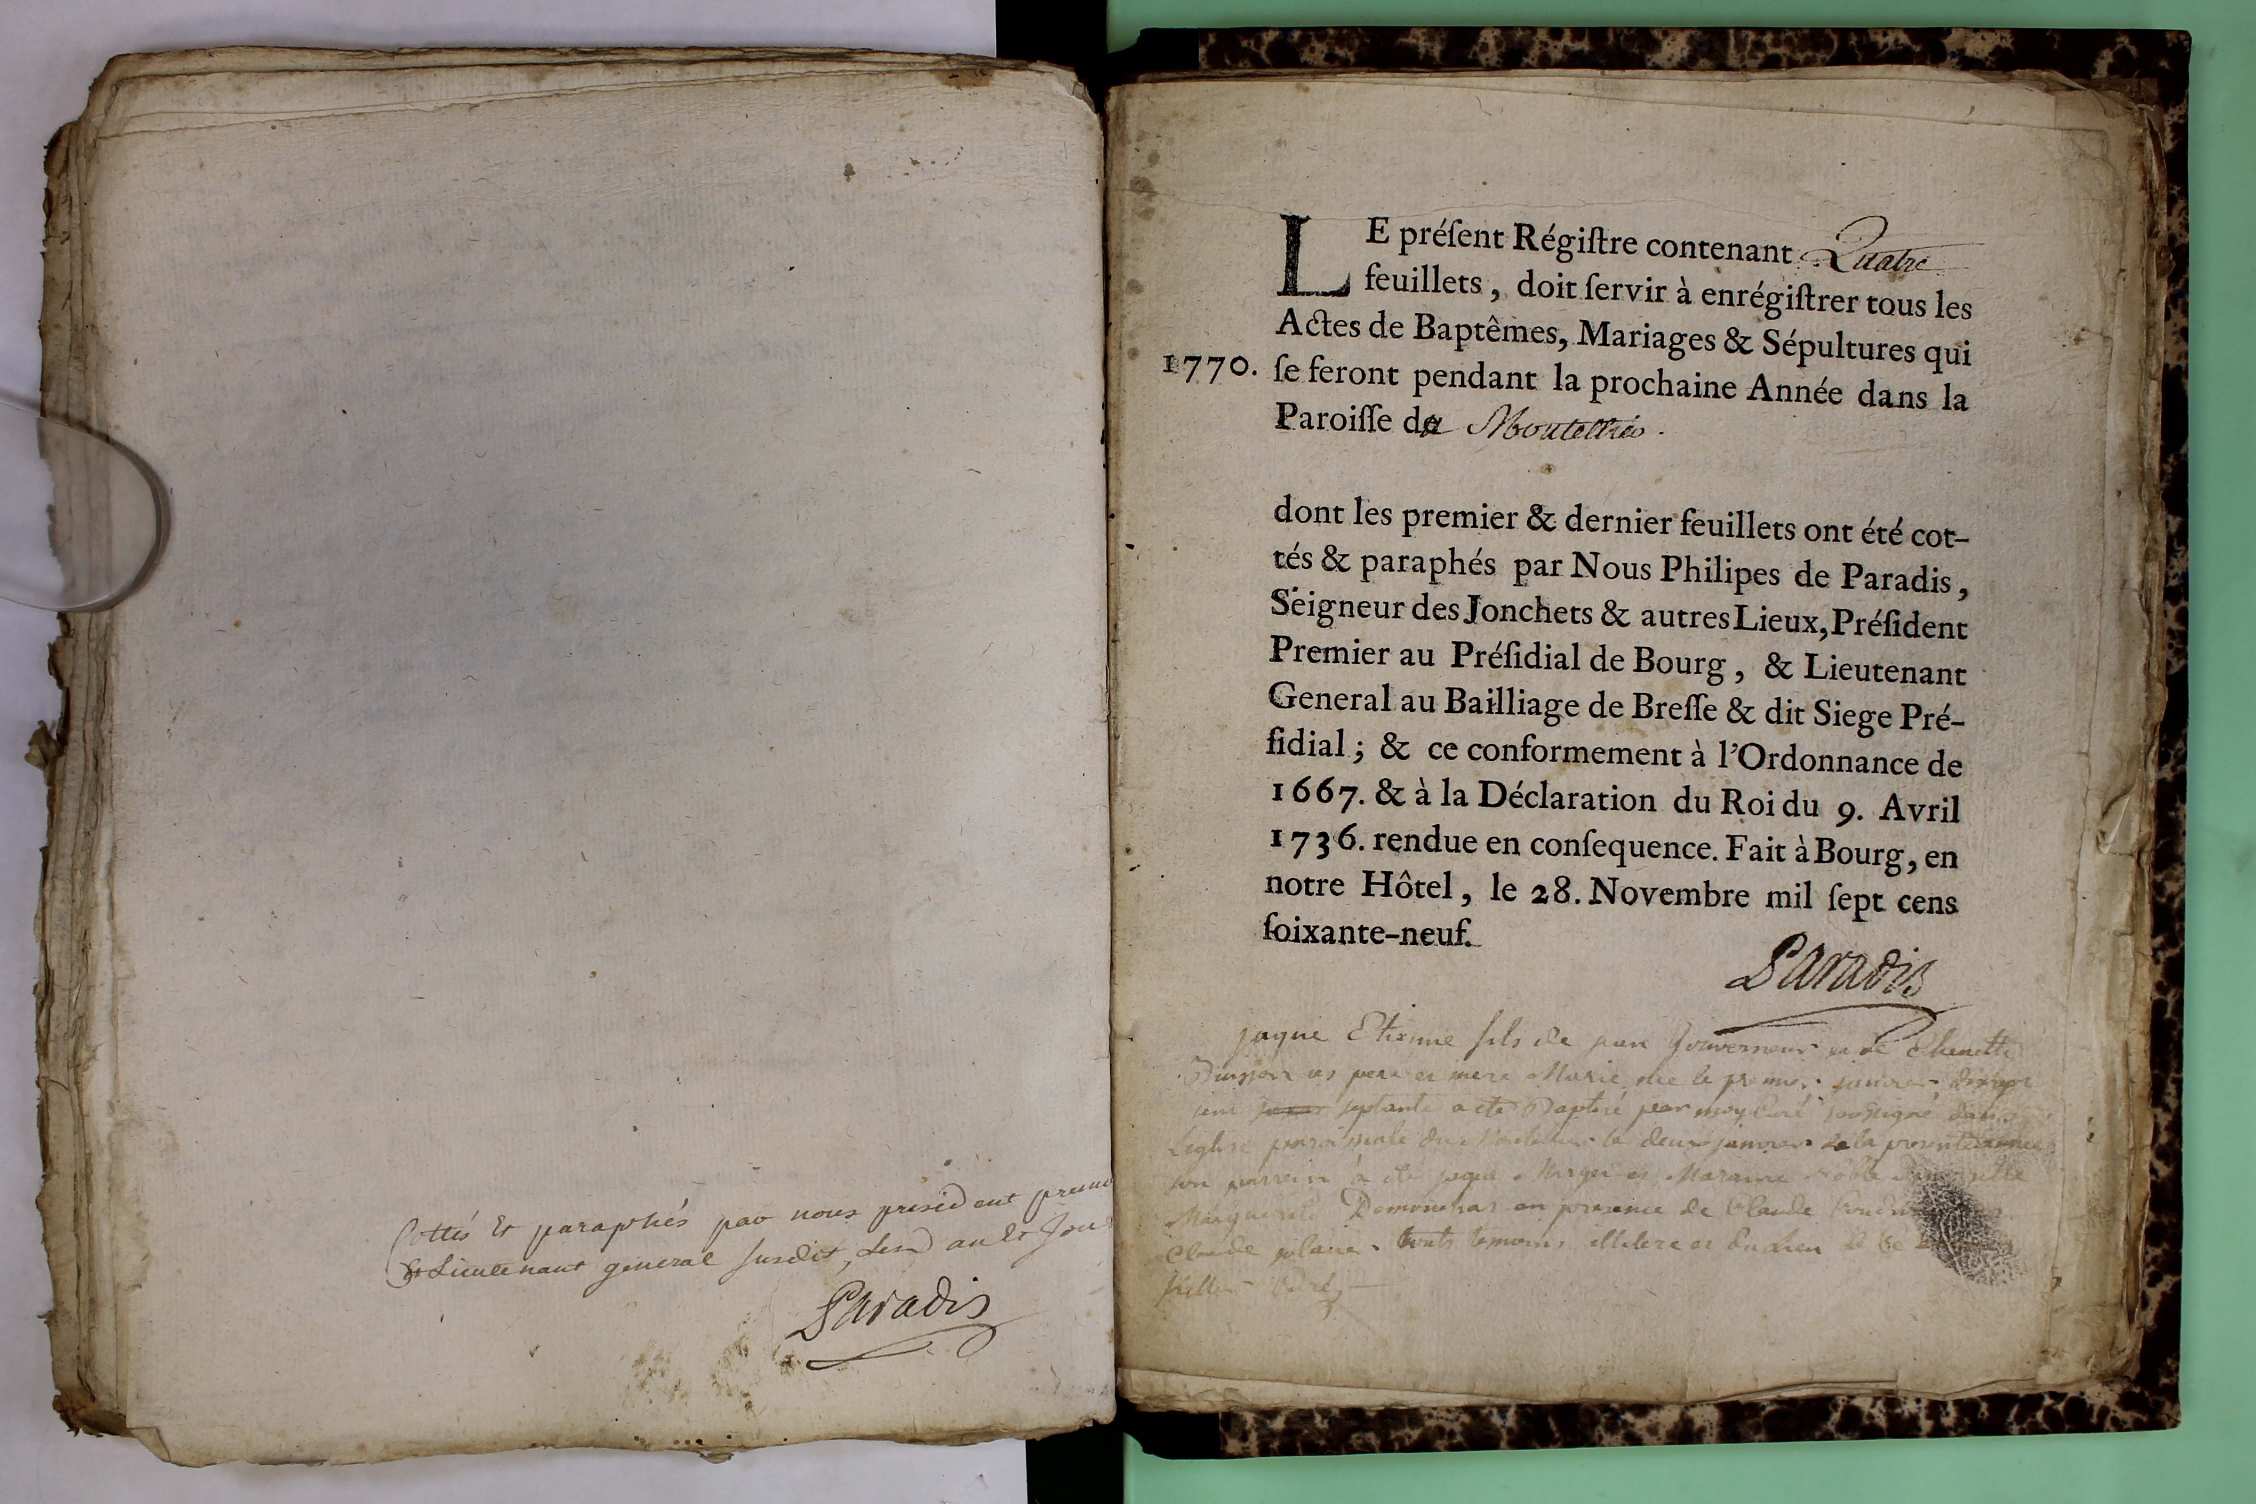 Cottés et paraphés par nous président premier
& Lieutenant general susdit, lesd an et jour
Paradis
LE préſent Régiſtre contenant Quatre
feuillets, doit ſervir à enrégiſtrer tous les
Actes de Baptêmes, Mariages & Sépultures qui
1770. ſe feront pendant la prochaine Année dans la
Paroiſſe de Montellier.
dont les premier & dernier feuillets ont été cot-
tés & paraphés par Nous Philipes de Paradis,
Seigneur des Jonchets & autres Lieux, Préſident
Premier au Préſidial de Bourg, & Lieutenant
General au Bailliage de Breſſe & dit Siege Pré-
ſidial; & ce conformement à l'Ordonnance de
1667. & à la Déclaration du Roi du 9. Avril
1736. rendue en conſequence. Fait à Bourg, en
notre Hôtel, le 28. Novembre mil ſept cens
ſoixante-neuf.
Paradis
jaque Etienne fils de jean Gouverneur et de
ses pere et mere Marie née le premier janvier dix sept
cent septante a eté Baptisé par moy Curé soussigné dans
L'eglise paroissiale du le deux janvier de la presente année
son parrein à été jaque et Maraine Noble Demoiselle
Marguerite en presence de Claude
Claude temoins illitere et du Lieu
Curé